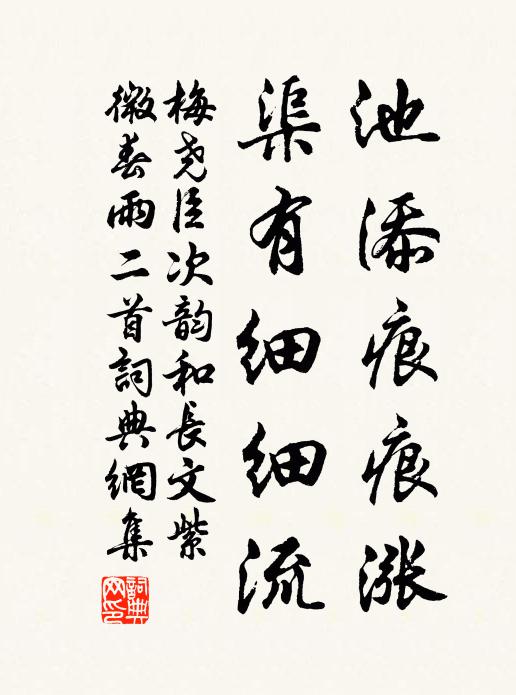 池添痕痕涨
渠有细细流
梅尧臣次韵和长文紫
微春雨二首词典網集
詞典網印